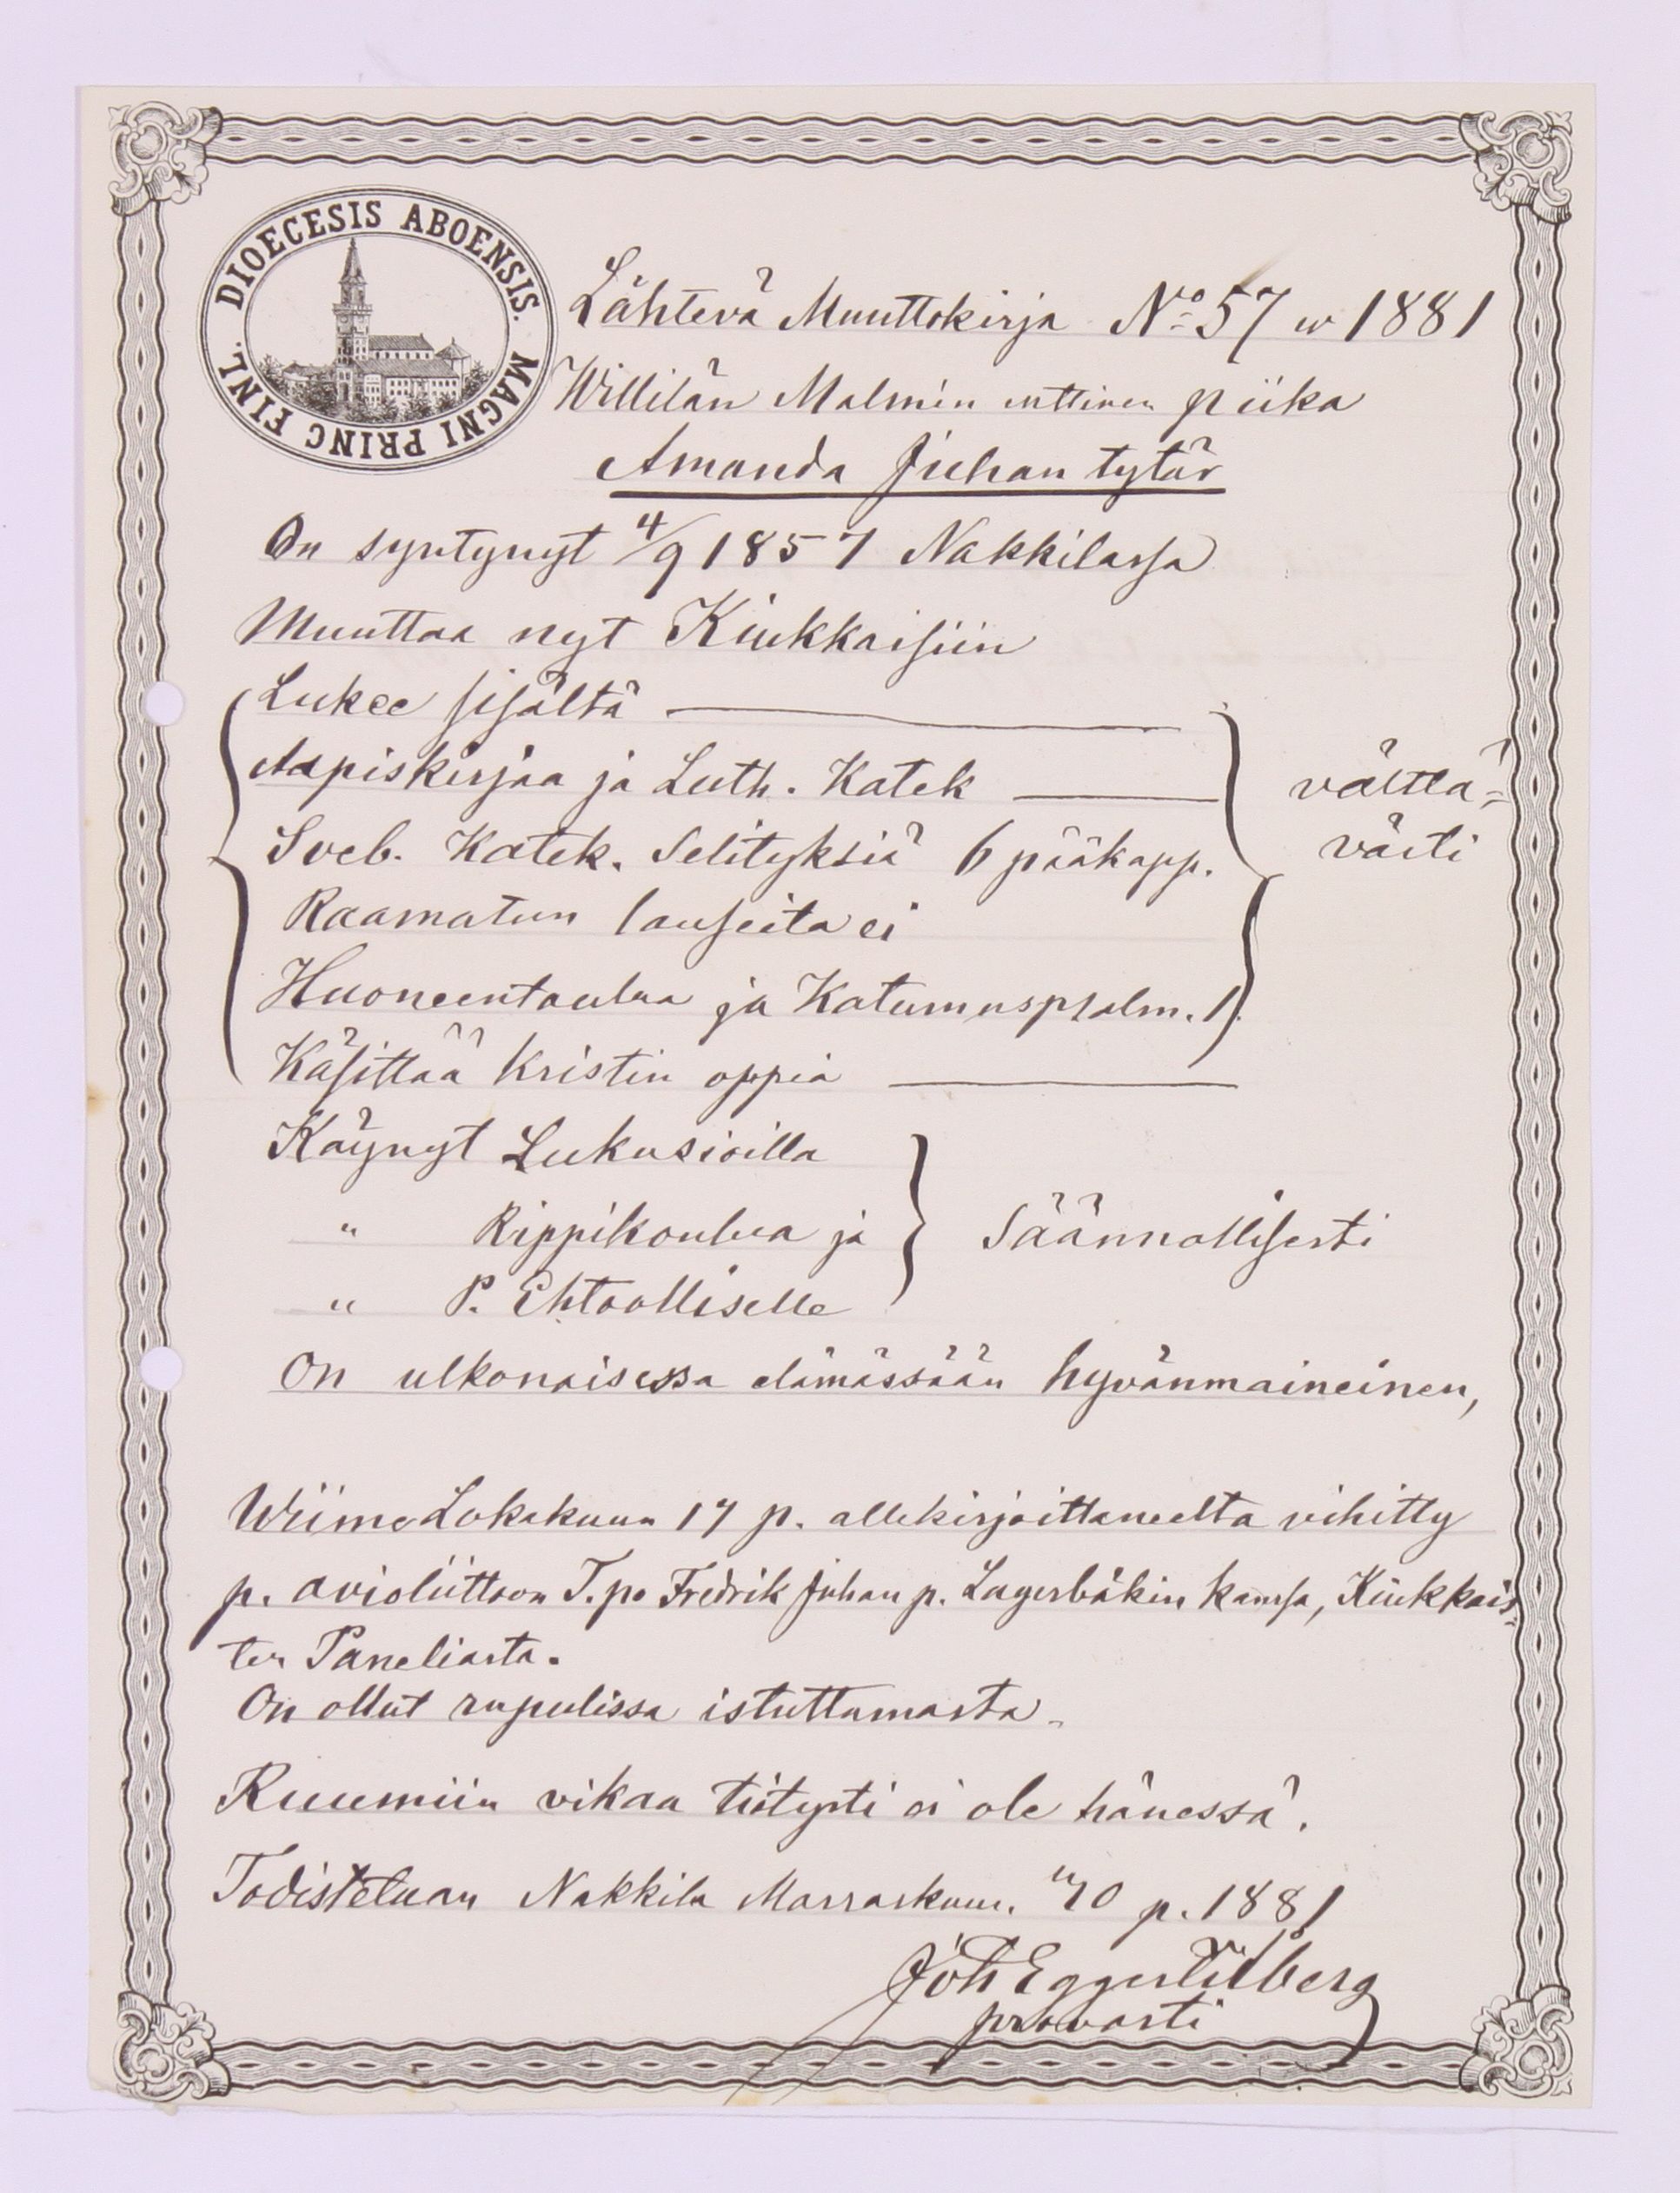 DIOECESIS ABOENSIS. MAGNI PRINC FINL.
Lähtevä Muuttokirja No 57 w 1881
Willilän Malmin entinen piika
Amanda Juhan tytär
On syntynyt 4/9 1857 Nakkilassa
Muuttaa nyt Kiukkaisiin
Lukee sisältä
Aapiskirjaa ja Luth. Katek
Sveb. Katek. Selityksiä 6 pääkapp.
Raamatun lauseita ei
Huoneentaulua ja Katumuspsalm. 1.
Käsittää Kristin oppia
välttä-
västi
Käynyt Lukusioilla
" Rippikoulua ja
" P. Ehtoolliselle
Säännöllisesti
On ulkonaisessa elämässään hyvänmaineinen,
Wiime Lokakuun 17 p. allekirjoittaneelta vihitty
p. avioliittoon T.po Fredrik Juhan p. Lagerbäkin kanssa, Kiukkais-
ten Paneliasta.
On ollut rupulissa istuttamasta.
Ruumiin vikaa tietysti ei ole hänessä.
Todistetaan Nakkila Marraskuun. 10 p. 1881
Joh Eggert Lilberg
provasti